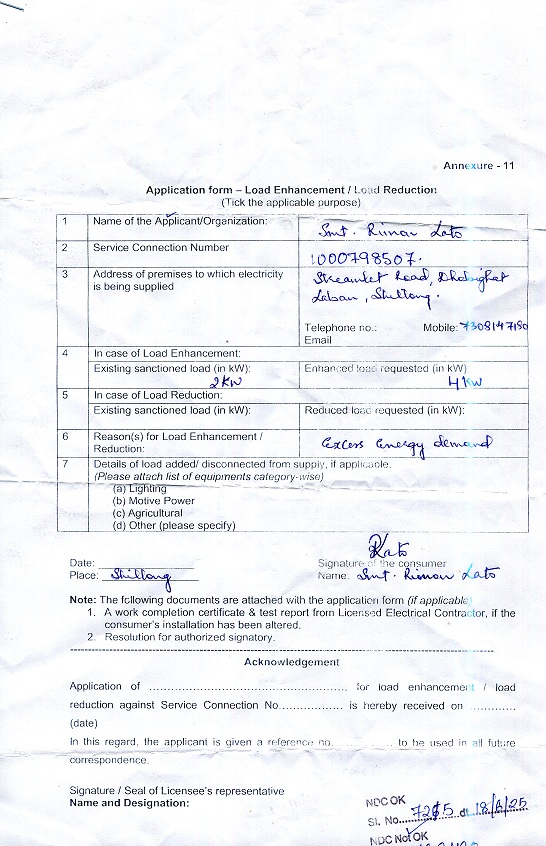 Annexure - 11
Application form – Load Enhancement / Load Reduction
(Tick the applicable purpose)
1 Name of the Applicant/Organization: Smt. Rimon Lato
2 Service Connection Number 1000798507.
3 Address of premises to which electricity is being supplied
Streamlet Road, Dhobighat
Laban, Shillong.
Telephone no.: Mobile: 7308147180
Email
4 In case of Load Enhancement:
Existing sanctioned load (in kW): Enhanced load requested (in kW)
2KW 4KW
5 In case of Load Reduction:
Existing sanctioned load (in kW): Reduced load requested (in kW):
6 Reason(s) for Load Enhancement / Reduction: Excess Energy demand
7 Details of load added/ disconnected from supply, if applicable.
(Please attach list of equipments category-wise)
(a) Lighting
(b) Motive Power
(c) Agricultural
(d) Other (please specify)
Lato
Date: Signature of the consumer
Place: Shillong Name: Smt. Rimon Lato
Note: The following documents are attached with the application form (if applicable)
1. A work completion certificate & test report from Licensed Electrical Contractor, if the
consumer's installation has been altered.
2. Resolution for authorized signatory.
Acknowledgement
Application of .......................................... for load enhancement / load
reduction against Service Connection No................. is hereby received on ............
(date)
In this regard, the applicant is given a reference no. ................ to be used in all future
correspondence.
Signature / Seal of Licensee's representative
Name and Designation:
NDC OK
Sl. No. dt 18/6/25
NDC Not OK